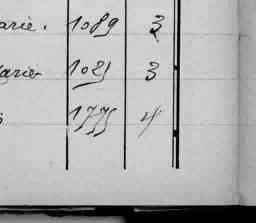 arie. 1089 3
arie 1021 3
1775 4